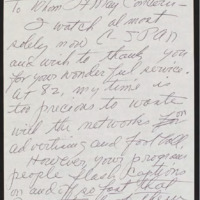 To Whom It May Concern-
I watch almost
solely now C-SPAN
and wish to thank you
for your wonderful service.
At 82, my time is
too precious to waste
with the networks on
advertising and football.
However your programs
people flash captions
on and off so fast that